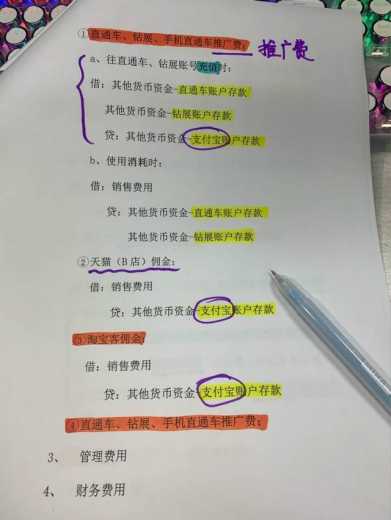 ①直通车、钻展、手机直通车推广费: 推广费
a、往直通车、钻展账号充值时:
借:其他货币资金-直通车账户存款
其他货币资金-钻展账户存款
贷:其他货币资金-支付宝账户存款
b、使用消耗时:
借:销售费用
贷:其他货币资金-直通车账户存款
其他货币资金-钻展账户存款
②天猫(B店)佣金:
借:销售费用
贷:其他货币资金-支付宝账户存款
③淘宝客佣金:
借:销售费用
贷:其他货币资金-支付宝账户存款
④直通车、钻展、手机直通车推广费:
3、 管理费用
4、 财务费用